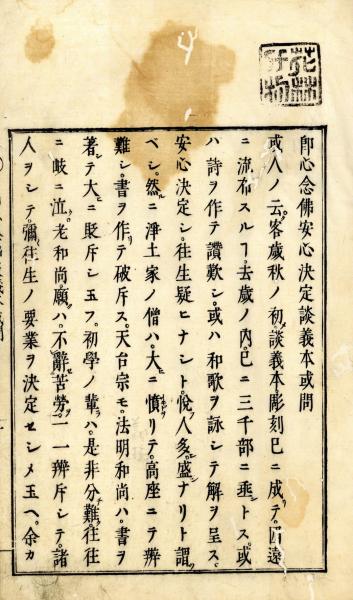 即心念佛安心決定談義本或問
或人ノ云。客歲秋ノ初。談義本彫刻已ニ成テ。四遠
ニ流布スルヿ。去歲ノ内。已ニ三千部ニ埀トス。或
ハ詩ヲ作テ讚歎シ。或ハ和歌ヲ詠シテ解ヲ呈ス。
安心決定シ。往生疑ヒナシト。悅人多。盛ナリト謂
ベシ。然ニ淨土家ノ僧ハ。大ニ憤リテ。高座ニテ辨
難シ。書ヲ作テ破斥ス。天台宗モ。法明和尚ハ。書ヲ
著テ大ニ貶斥シ玉フ。初學ノ輩ハ。是非分難。往往
ニ岐ニ泣。老和尚。願ハ。不辭苦勞。一一辨斥シテ。諸
人ヲシテ。彌往生ノ要業ヲ決定セシメ玉ヘ。余カ